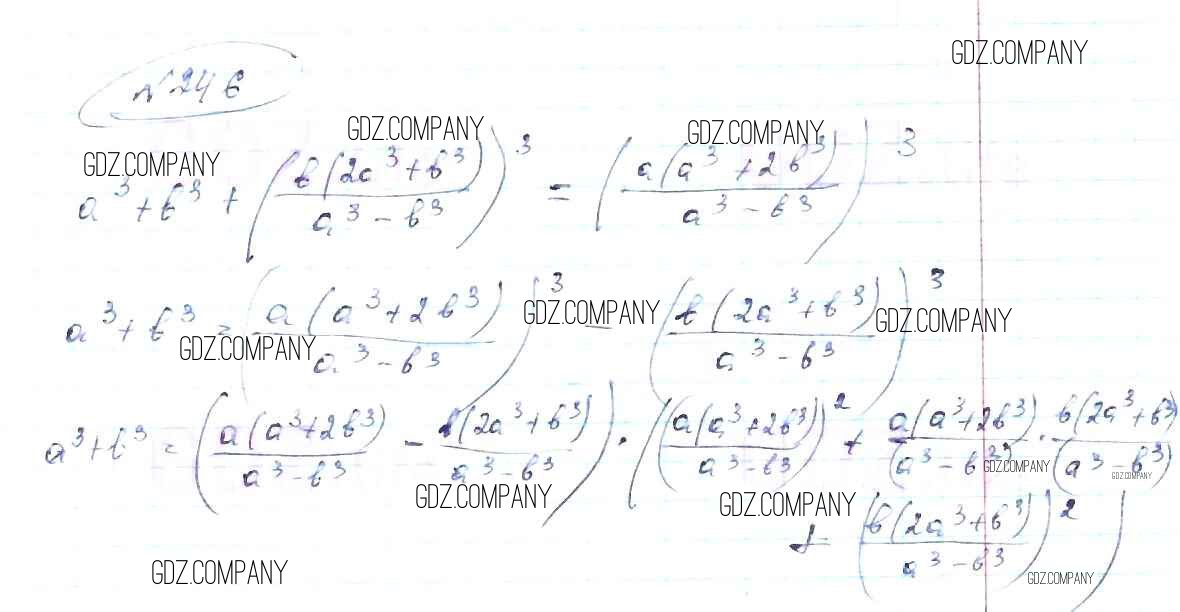 GDZ.COMPANY
№246
GDZ.COMPANY GDZ.COMPANY GDZ.COMPANY
a³+b³+(b(2a³+b³)/a³-b³)³=(a(a³+2b³)/a³-b³)³
a³+b³=(a(a³+2b³)/a³-b³)³-(b(2a³+b³)/a³-b³)³
GDZ.COMPANY GDZ.COMPANY GDZ.COMPANY
a³+b³=(a(a³+2b³)/a³-b³-b(2a³+b³)/a³-b³)·((a(a³+2b³)/a³-b³)²+a(a³+2b³)/(a³-b³)·b(2a³+b³)/(a³-b³)
GDZ.COMPANY GDZ.COMPANY GDZ.COMPANY GDZ.COMPANY
+(b(2a³+b³)/a³-b³)²)
GDZ.COMPANY GDZ.COMPANY